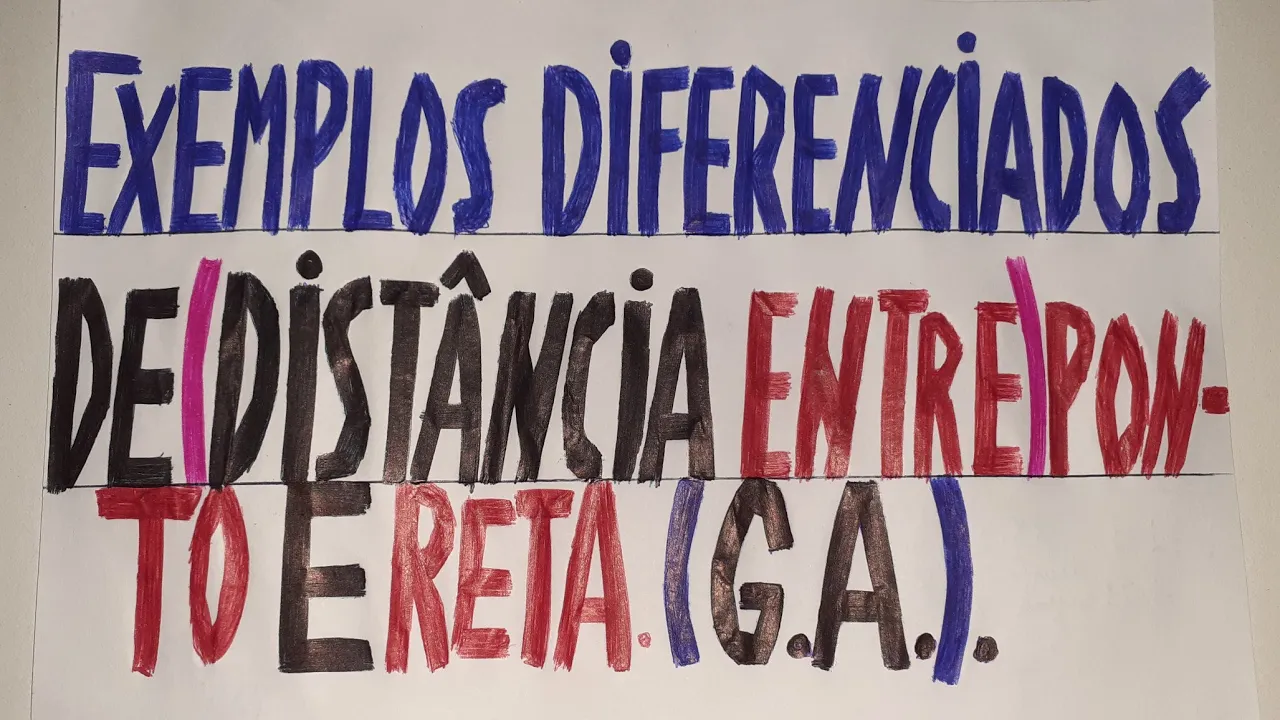 EXEMPLOS DIFERENCIADOS
DE(DISTÂNCIA ENTRE)PON-
TO E RETA. (G.A.).